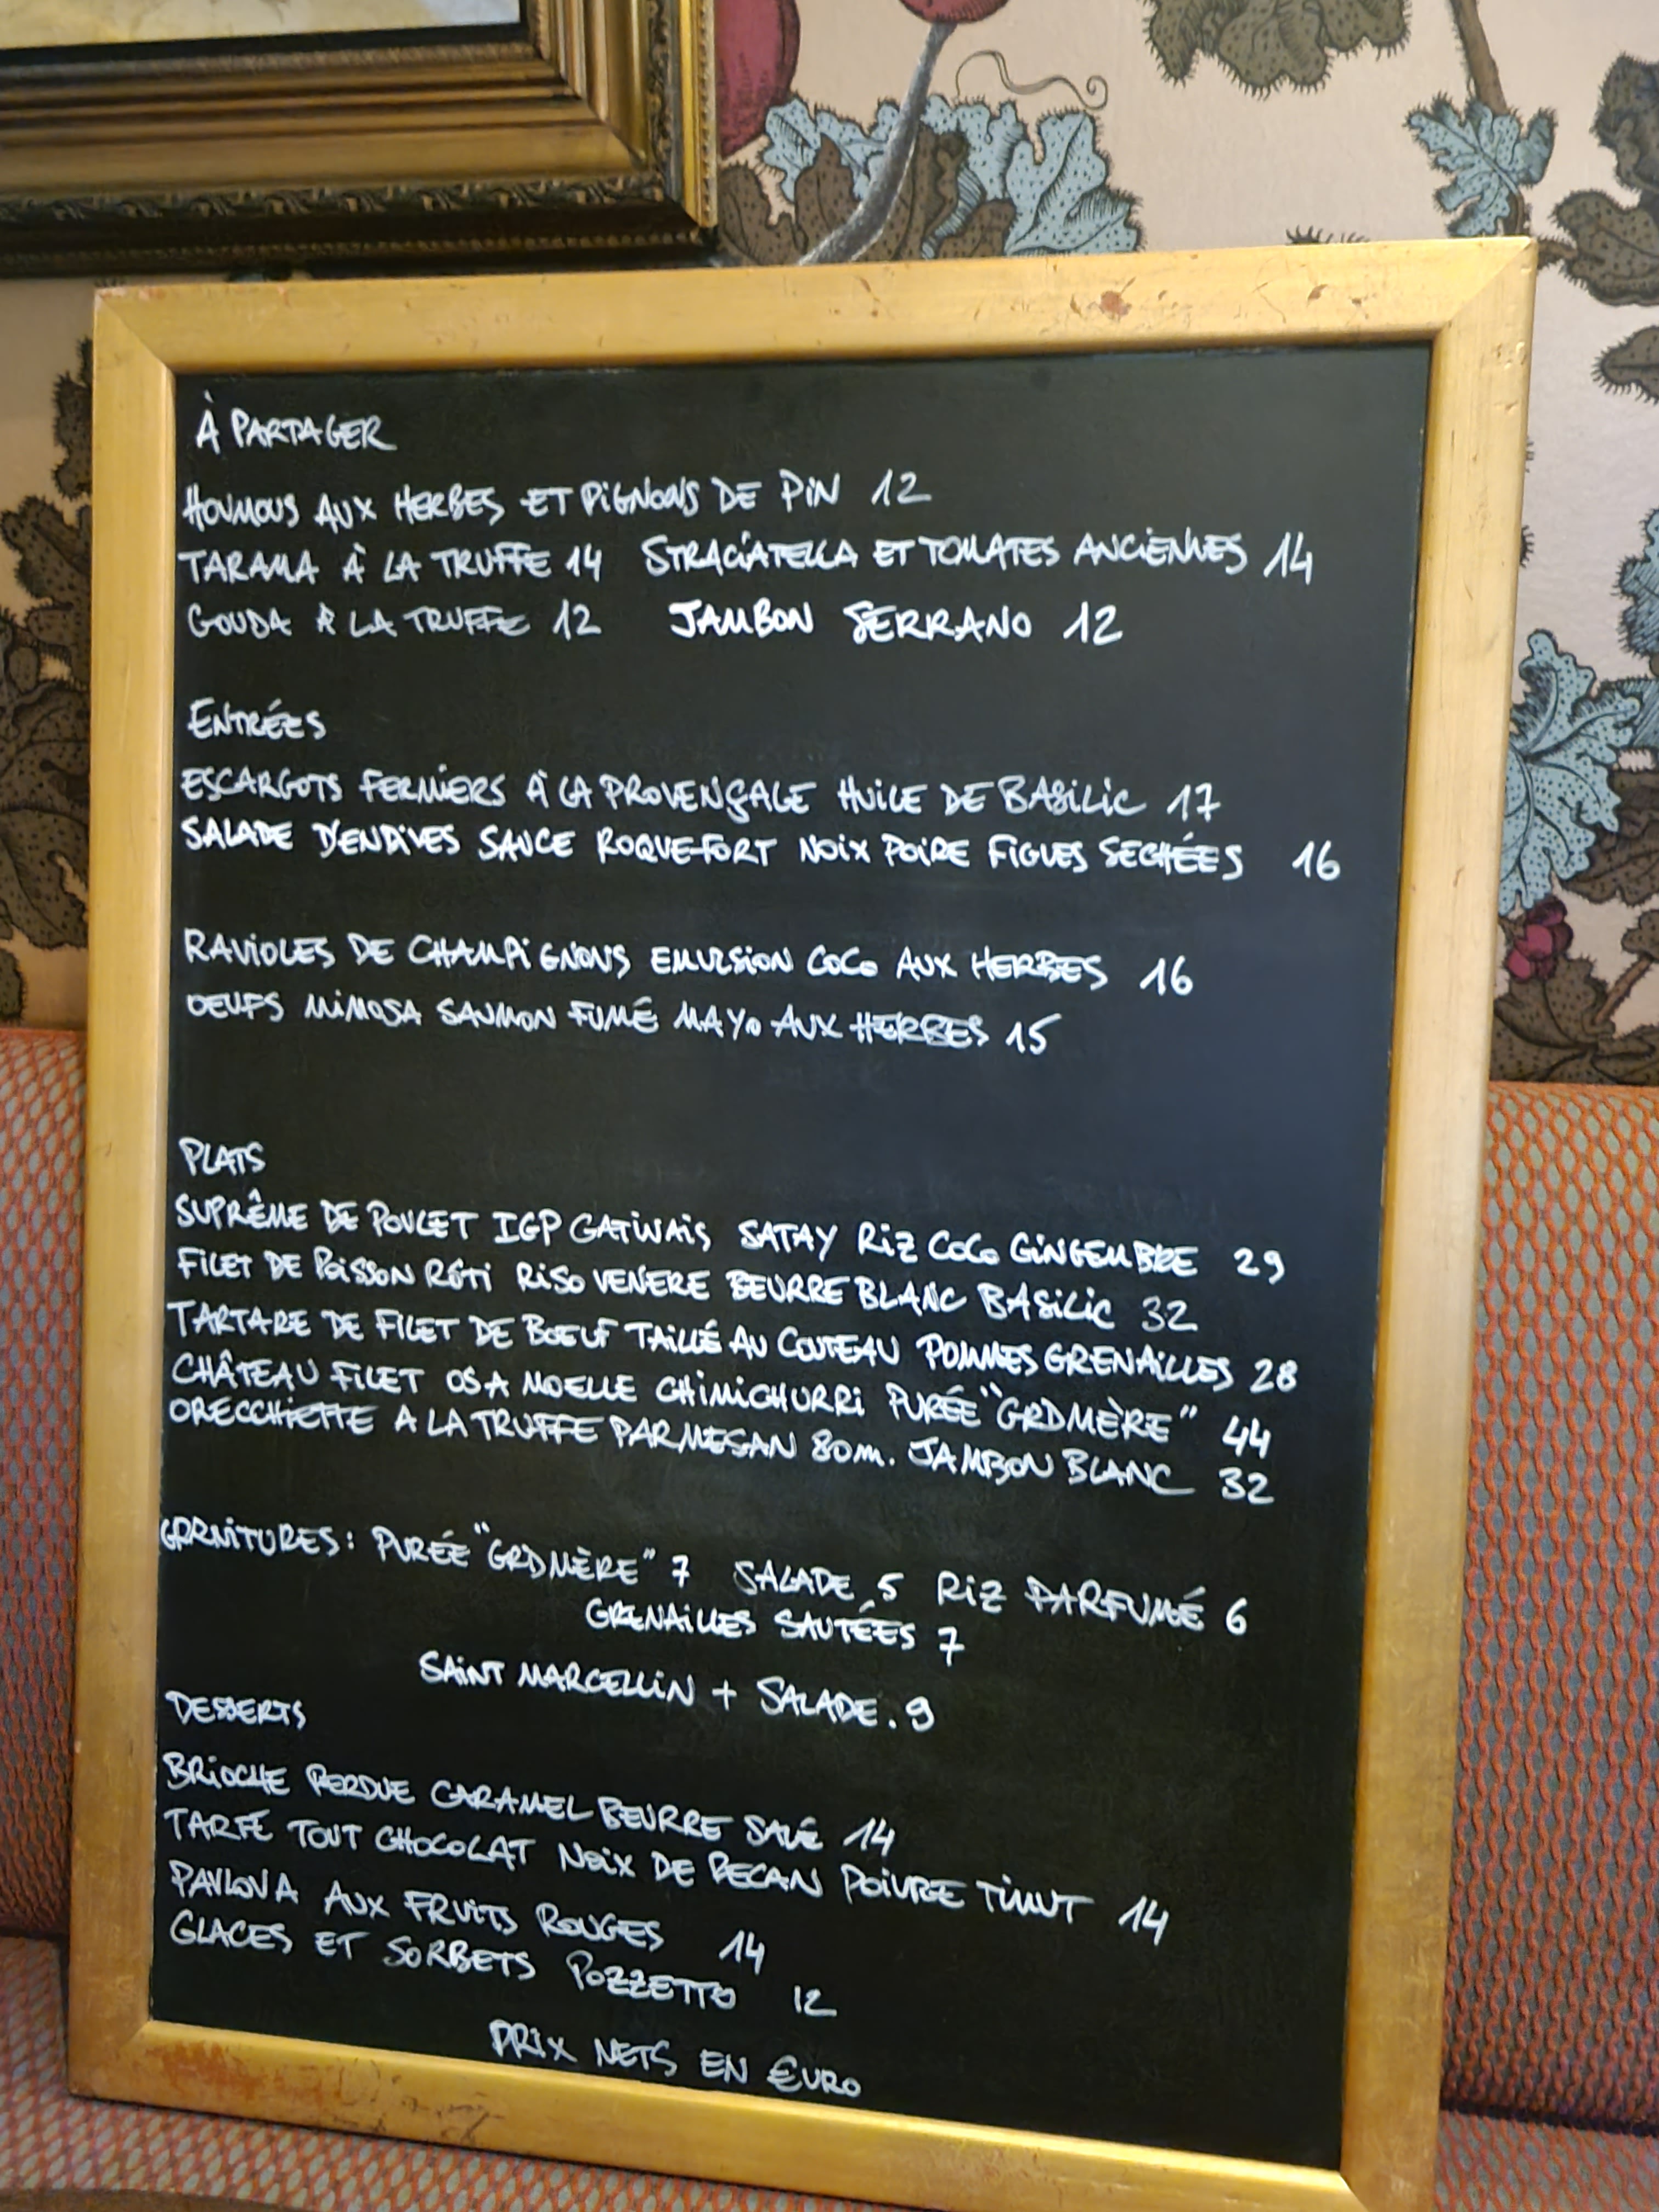 À PARTAGER
HOUMOUS AUX HERBES ET PIGNONS DE PIN 12
TARAMA À LA TRUFFE 14 STRACIATELLA ET TOMATES ANCIENNES 14
GOUDA À LA TRUFFE 12 JAMBON SERRANO 12
ENTRÉES
ESCARGOTS FERMIERS À LA PROVENÇALE HUILE DE BASILIC 17
SALADE D'ENDIVES SAUCE ROQUEFORT NOIX POIRE FIGUES SECHÉES 16
RAVIOLES DE CHAMPIGNONS EMULSION COCO AUX HERBES 16
OEUFS MIMOSA SAUMON FUMÉ MAYO AUX HERBES 15
PLATS
SUPRÊME DE POULET IGP GATINAIS SATAY RIZ COCO GINGEMBRE 29
FILET DE POISSON RÔTI RISO VENERE BEURRE BLANC BASILIC 32
TARTARE DE FILET DE BOEUF TAILLÉ AU COUTEAU POMMES GRENAILLES 28
CHÂTEAU FILET OS A MOELLE CHIMICHURRI PURÉE "GRDMÈRE" 44
ORECCHIETTE A LA TRUFFE PARMESAN 80m. JAMBON BLANC 32
GARNITURES: PURÉE "GRDMÈRE" 7 SALADE 5 RIZ PARFUMÉ 6
GRENAILLES SAUTÉES 7
SAINT MARCELLIN + SALADE. 9
DESSERTS
BRIOCHE PERDUE CARAMEL BEURRE SALÉ 14
TARTE TOUT CHOCOLAT NOIX DE PECAN POIVRE TIMUT 14
PAVLOVA AUX FRUITS ROUGES 14
GLACES ET SORBETS POZZETTO 12
PRIX NETS EN €URO